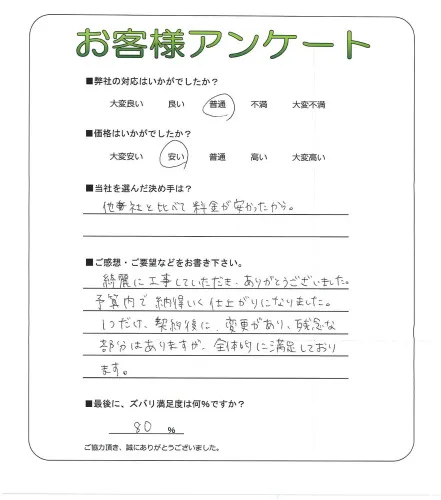 お客様アンケート
■弊社の対応はいかがでしたか？
大変良い 良い 普通 不満 大変不満
■価格はいかがでしたか？
大変安い 安い 普通 高い 大変高い
■当社を選んだ決め手は？
他社と比べて料金が安かったから。
■ご感想・ご要望などをお書き下さい。
綺麗に工事していただき、ありがとうございました。
予算内で納得いく仕上がりになりました。
1つだけ、契約後に、変更があり、残念な
部分はありますが、全体的に満足しており
ます。
■最後に、ズバリ満足度は何％ですか？
80 %
ご協力頂き、誠にありがとうございました。